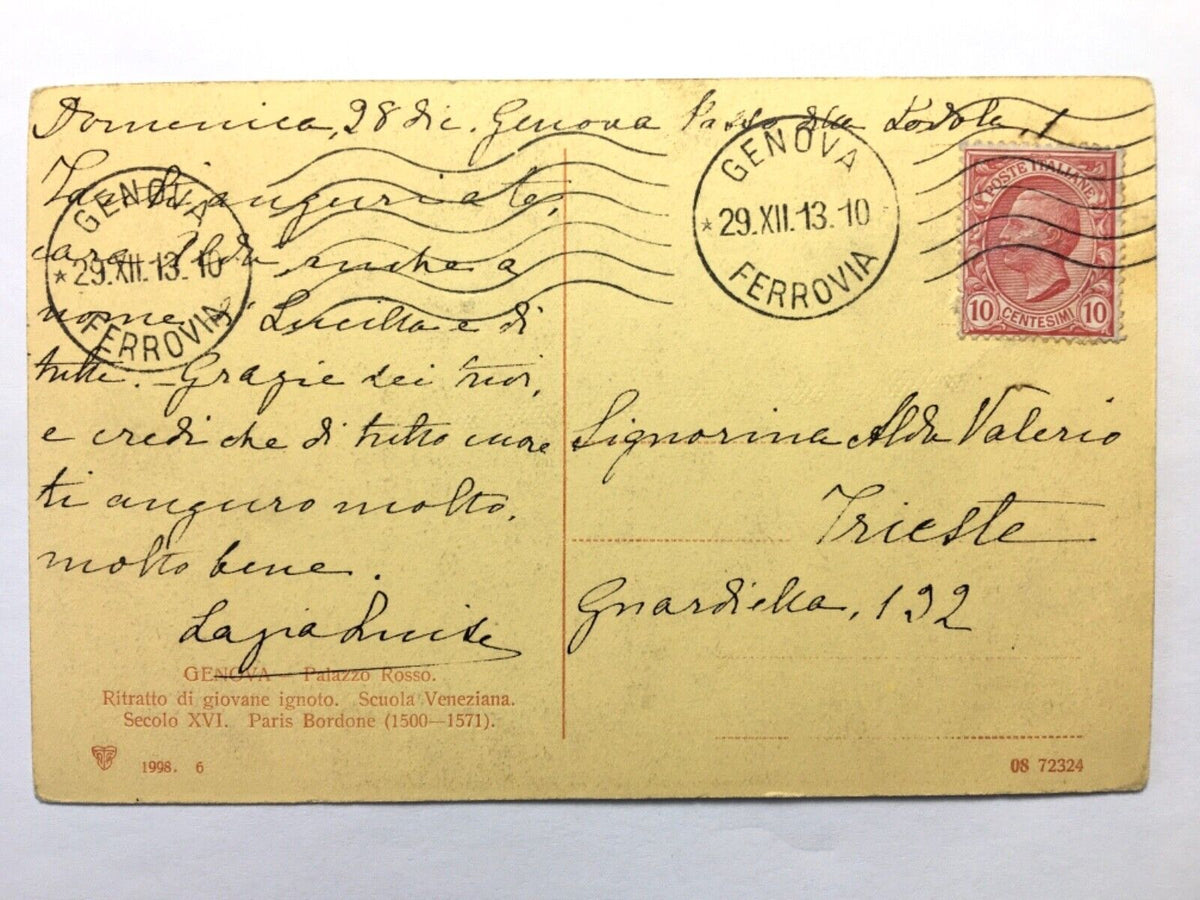 Domenica, 28 dic. Genova Passo della Lodola, 1
Tanti auguri a te,
cara Alda anche a
nome di Lucilla e di
tutti. - Grazie dei tuoi,
e credi che di tutto cuore
ti auguro molto,
molto bene.
La zia Luisa
GENOVA
* 29.XII.13.10
FERROVIA
GENOVA
* 29.XII.13.10
FERROVIA
POSTE ITALIANE
10 CENTESIMI 10
Signorina Alda Valerio
Trieste
Guardiella, 192
GENOVA - Palazzo Rosso.
Ritratto di giovane ignoto. Scuola Veneziana.
Secolo XVI. Paris Bordone (1500—1571).
1998. 6
08 72324